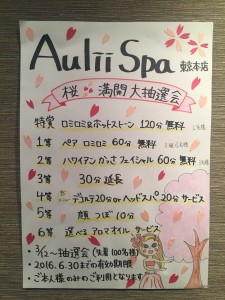 Aulii Spa 東京本店
桜 満開大抽選会
特賞 ロミロミ&ホットストーン 120分 無料
1等 ペア ロミロミ 60分 無料
2等 ハワイアン かっさ フェイシャル 60分 無料
3等 30分 延長
4等 デコルテ20分 or ヘッドスパ 20分 サービス
5等 顔つぼ 10分
6等 選べるアロマオイル サービス
・3/12〜抽選会(先着100名様)
・2016.6.30までの有効期限
・ご本人様のみのご利用となります